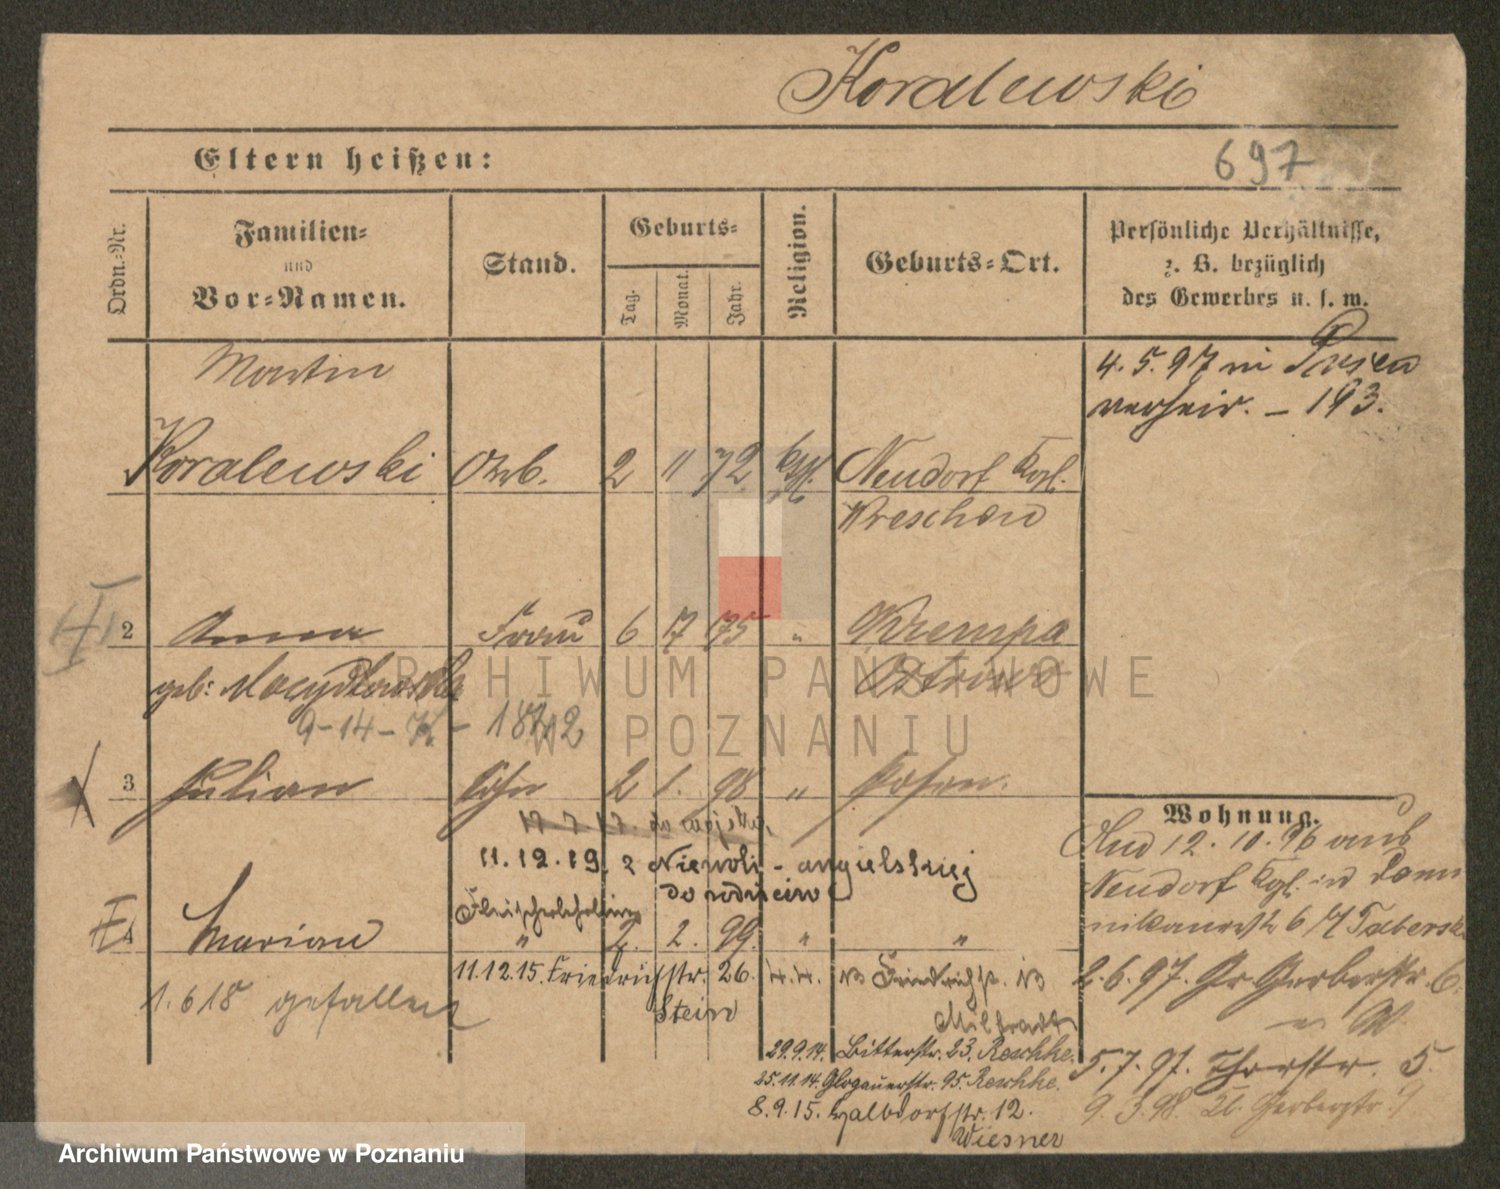 Koralewski
Eltern heißen:
697
Ordn.-Nr.
Familien-
und
Vor-Namen.
Stand.
Geburts-
Tag.
Monat.
Jahr.
Religion.
Geburts-Ort.
Persönliche Verhältnisse,
z. B. bezüglich
des Gewerbes u. s. w.
Martin
4. 5. 97 in Posen
verheir. – 193.
Koralewski 2 11 72 Neudorf Kgl.
Wreschen
2 Anna Frau 6 7 75 " Krempa
geb: Ostrowo
9-14-
3 Julian Sohn 2 1. 98 " Posen.
17.7.17. do wojska,
11.12.19. z Niewoli - angielskiej
do rodziców
Wohnung.
12. 10. 96 aus
Neudorf Kgl. in Domi
nikanerstr 6 / Tabersk
4 Marian " 2. 2. 99. " "
1. 6 18 gefallen
11.12.15. Friedrichstr. 26. 4.4. 13 Friedrichst. 13
Stein
2.6.97. Gr Gerberstr. 6.
29.9.14. Bitterstr. 23. Reschke.
25.11.14. Glogauerstr. 95. Reschke.
8.9.15. Halbdorfstr. 12.
Wiesner
5.7.97. Thorstr. 5.
9.3.98. Kl. Gerberstr. 9
ARCHIWUM PAŃSTWOWE
W POZNANIU
Archiwum Państwowe w Poznaniu